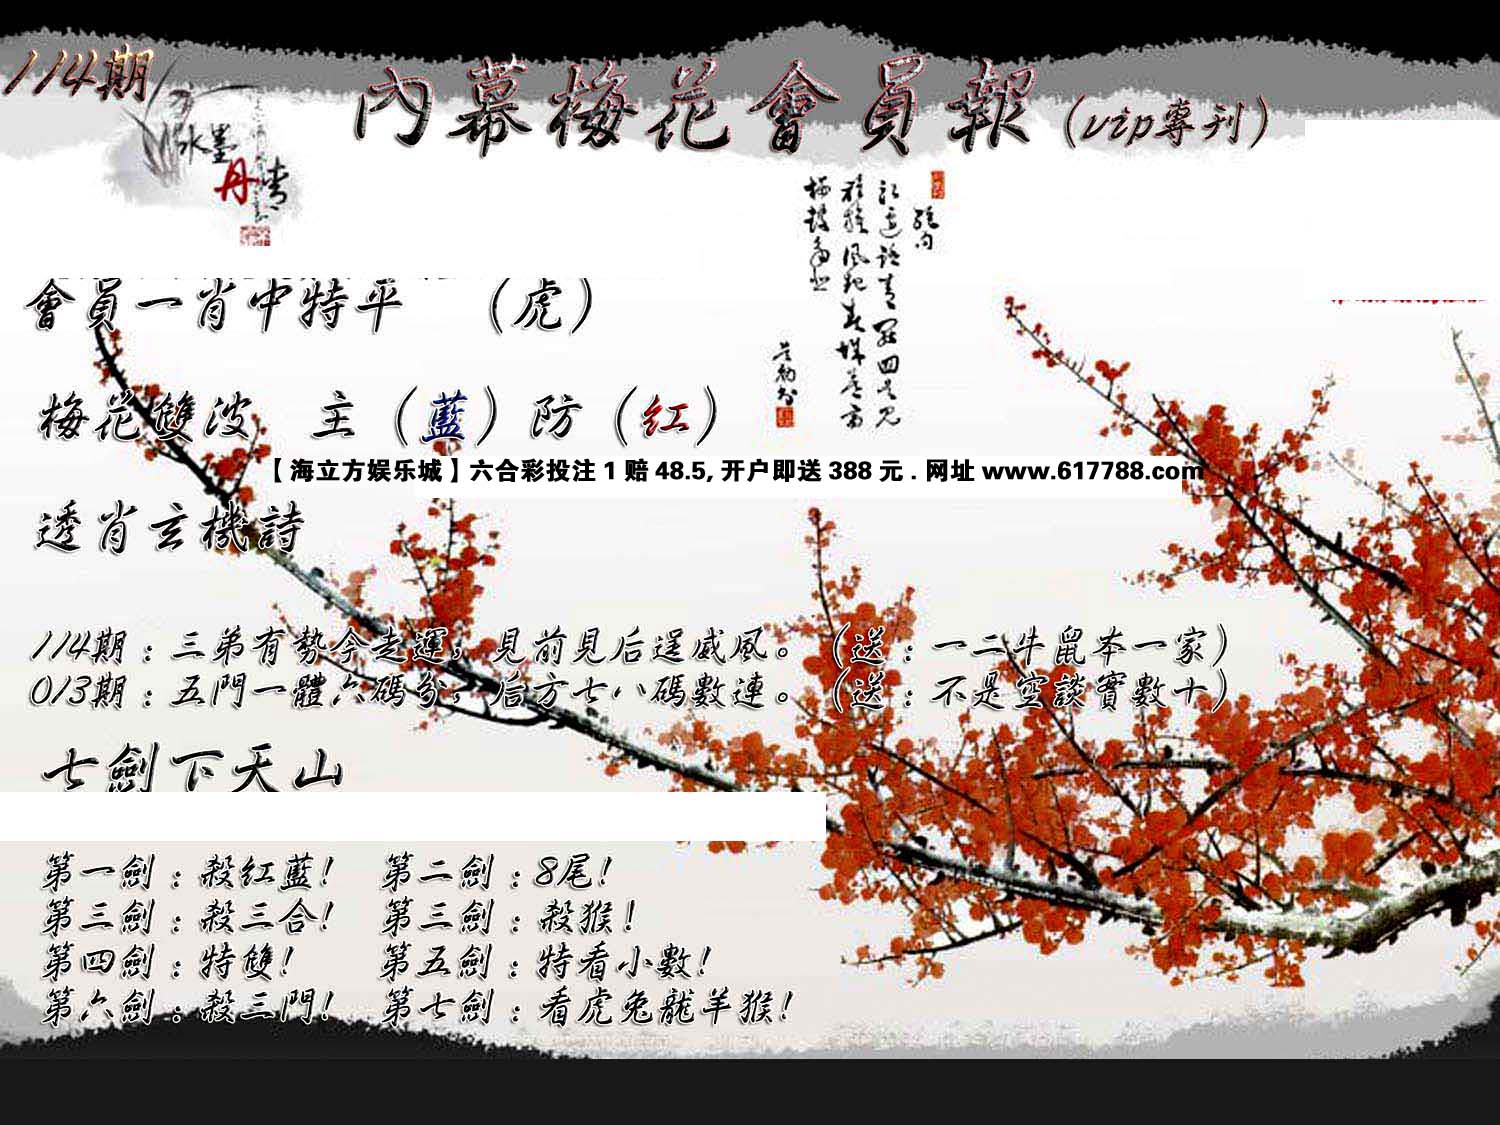 114期
內幕梅花會員報(vip專刊)
水墨
丹青
絕句
會員一肖中特平 (虎)
梅花雙波 主(藍)防(紅)
【海立方娱乐城】六合彩投注1赔48.5,开户即送388元.网址www.617788.com
透肖玄機詩
114期:三弟有勢今走運,見前見后逞威風。(送:一二牛鼠本一家)
013期:五門一體六碼分,后方七八碼數連。(送:不是空談實數十)
七劍下天山
第一劍:殺紅藍! 第二劍:8尾!
第三劍:殺三合! 第三劍:殺猴!
第四劍:特雙! 第五劍:特看小數!
第六劍:殺三門! 第七劍:看虎兔龍羊猴!